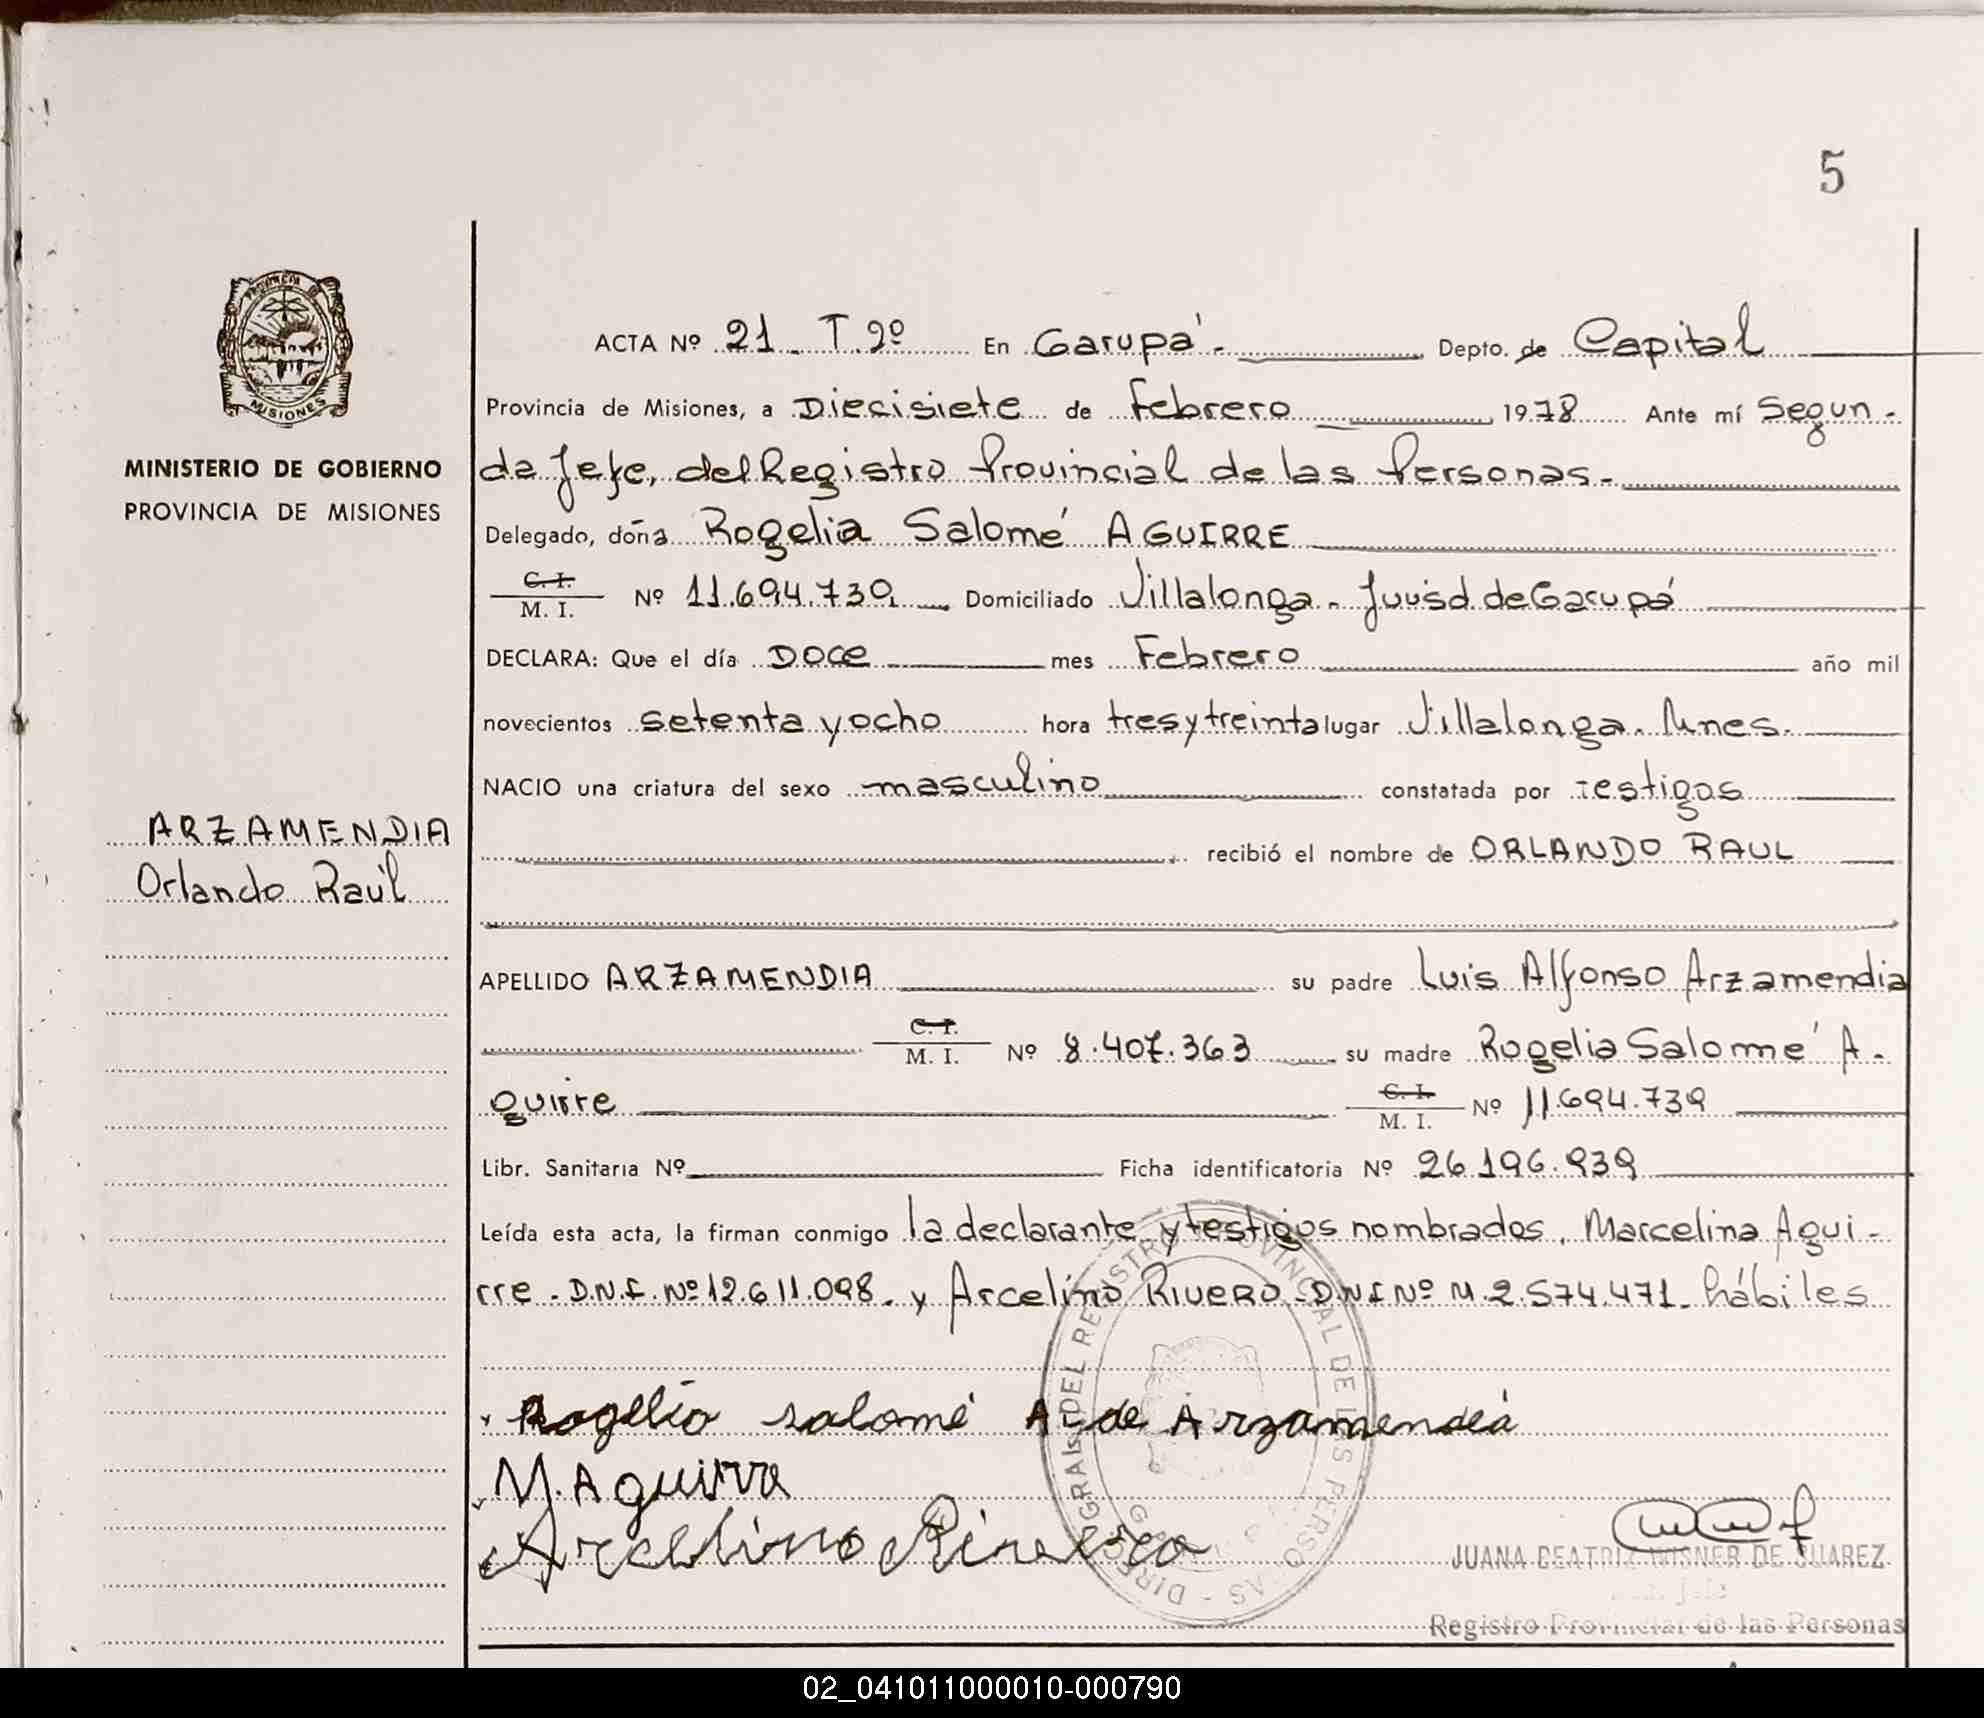 5
PROVINCIA DE
MISIONES
MINISTERIO DE GOBIERNO
PROVINCIA DE MISIONES
ARZAMENDIA
Orlando Raúl
ACTA Nº 21 T.2º En Garupá. Depto. de Capital
Provincia de Misiones, a Diecisiete de Febrero 1978 Ante mí Segun-
da Jefe, del Registro Provincial de las Personas.-
Delegado, doña Rogelia Salomé AGUIRRE
C. I.
M. I. Nº 11.694.739 Domiciliado Villalonga - Jurisd. de Garupá
DECLARA: Que el día Doce mes Febrero año mil
novecientos setenta y ocho hora tres y treinta lugar Villalonga. Mnes.
NACIO una criatura del sexo masculino constatada por testigos
recibió el nombre de ORLANDO RAUL
APELLIDO ARZAMENDIA su padre Luis Alfonso Arzamendia
C. I.
M. I. Nº 8.407.363 su madre Rogelia Salomé A-
guirre C. I.
M. I. Nº 11.694.739
Libr. Sanitaria Nº Ficha identificatoria Nº 26.196.939
Leída esta acta, la firman conmigo la declarante y testigos nombrados, Marcelina Agui-
rre - D.N.I. Nº 12.611.098. y Arcelino RIVERO - DNI Nº M.2.574.471. hábiles
Rogelia salomé A. de Arzamendia
M. Aguirre
Arcelino Rivero
JUANA BEATRIZ WISNER DE SUAREZ
Registro Provincial de las Personas
02_041011000010-000790